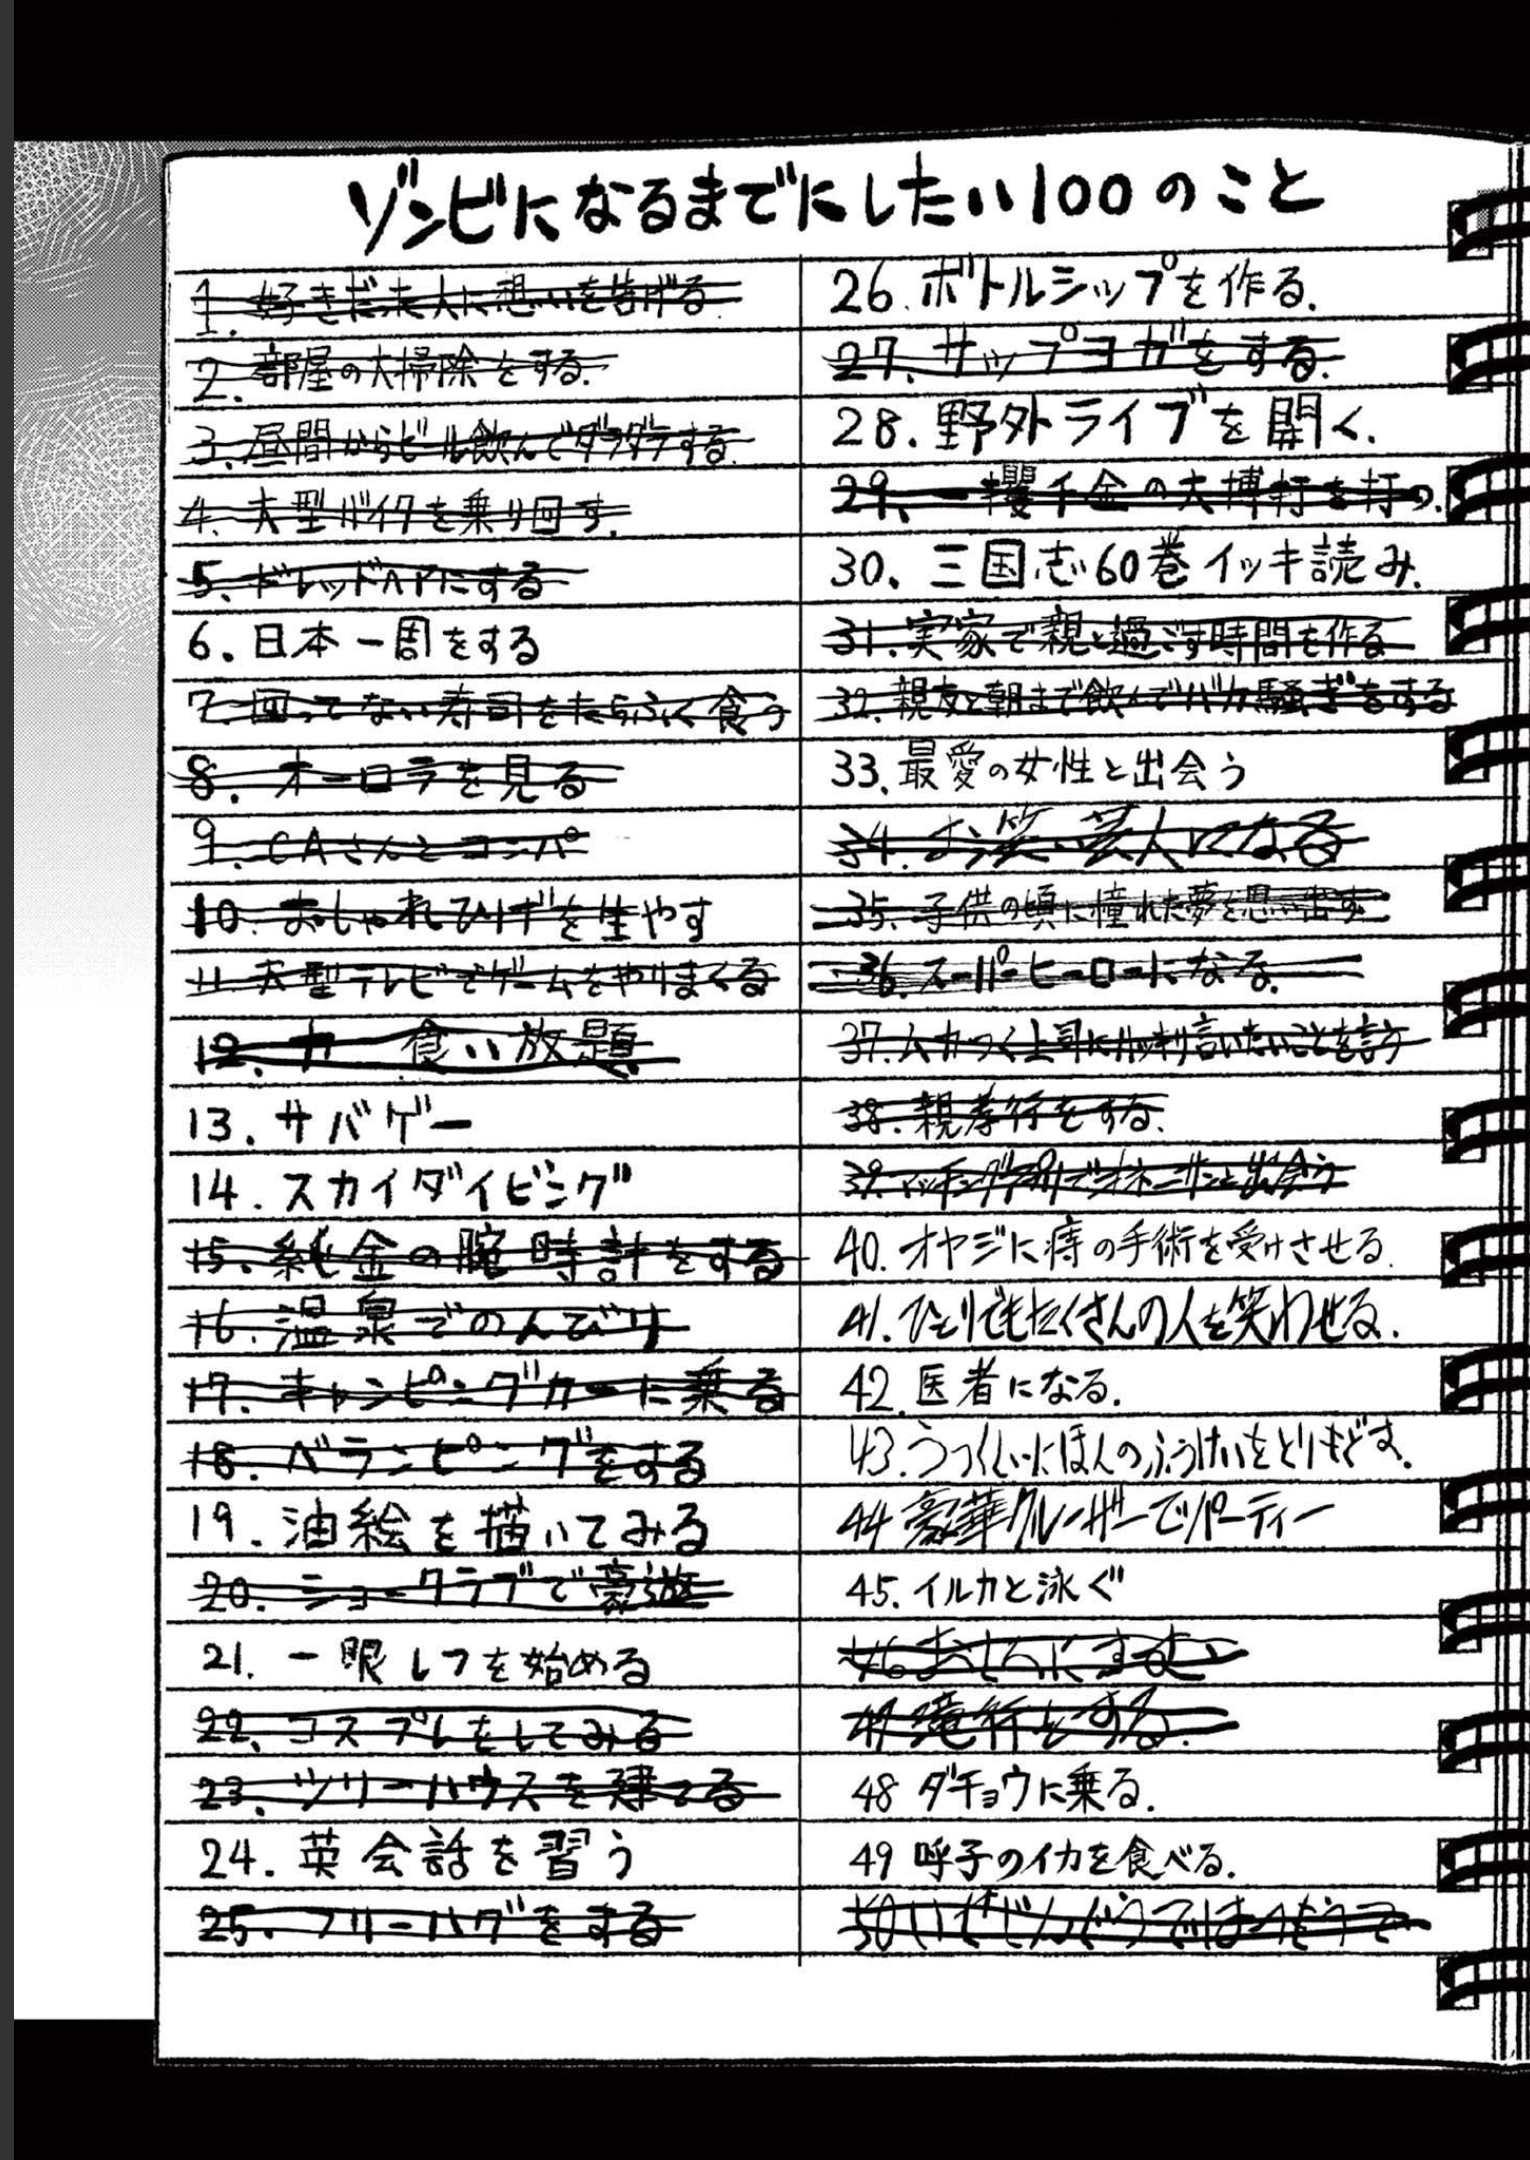 ゾンビになるまでにしたい100のこと
1. 好きだった人に想いを告げる.
2. 部屋の大掃除をする.
3. 昼間からビール飲んでダラダラする.
4. 大型バイクを乗り回す.
5. ドレッドヘアにする
6. 日本一周をする
7. 回ってない寿司をたらふく食う
8. オーロラを見る
9. CAさんとコンパ
10. おしゃれひげを生やす
11. 大型テレビでゲームをやりまくる
12. カ 食い放題
13. サバゲー
14. スカイダイビング
15. 純金の腕時計をする
16. 温泉でのんびり
17. キャンピングカーに乗る
18. ベランピングをする
19. 油絵を描いてみる
20. ショークラブで豪遊
21. 一眼レフを始める
22. コスプレをしてみる
23. ツリーハウスを建てる
24. 英会話を習う
25. フリーハグをする
26. ボトルシップを作る.
27. サップヨガをする.
28. 野外ライブを開く.
29. 一攫千金の大博打を打つ.
30. 三国志60巻イッキ読み.
31. 実家で親と過ごす時間を作る
32. 親友と朝まで飲んでバカ騒ぎをする
33. 最愛の女性と出会う
34. お笑い芸人になる
35. 子供の頃に憧れた夢を思い出す
36. スーパーヒーローになる.
37. ムカつく上司にガッツリ言いたいことを言う
38. 親孝行をする.
39. マッチングアプリでオネーサンと出会う
40. オヤジに痔の手術を受けさせる.
41. ひとりでもたくさんの人を笑わせる.
42. 医者になる.
43. うつくしいにほんのふうけいをとりもどす.
44 豪華クルーザーでパーティー
45. イルカと泳ぐ
46
47 滝行をする.
48 ダチョウに乗る.
49 呼子のイカを食べる.
50